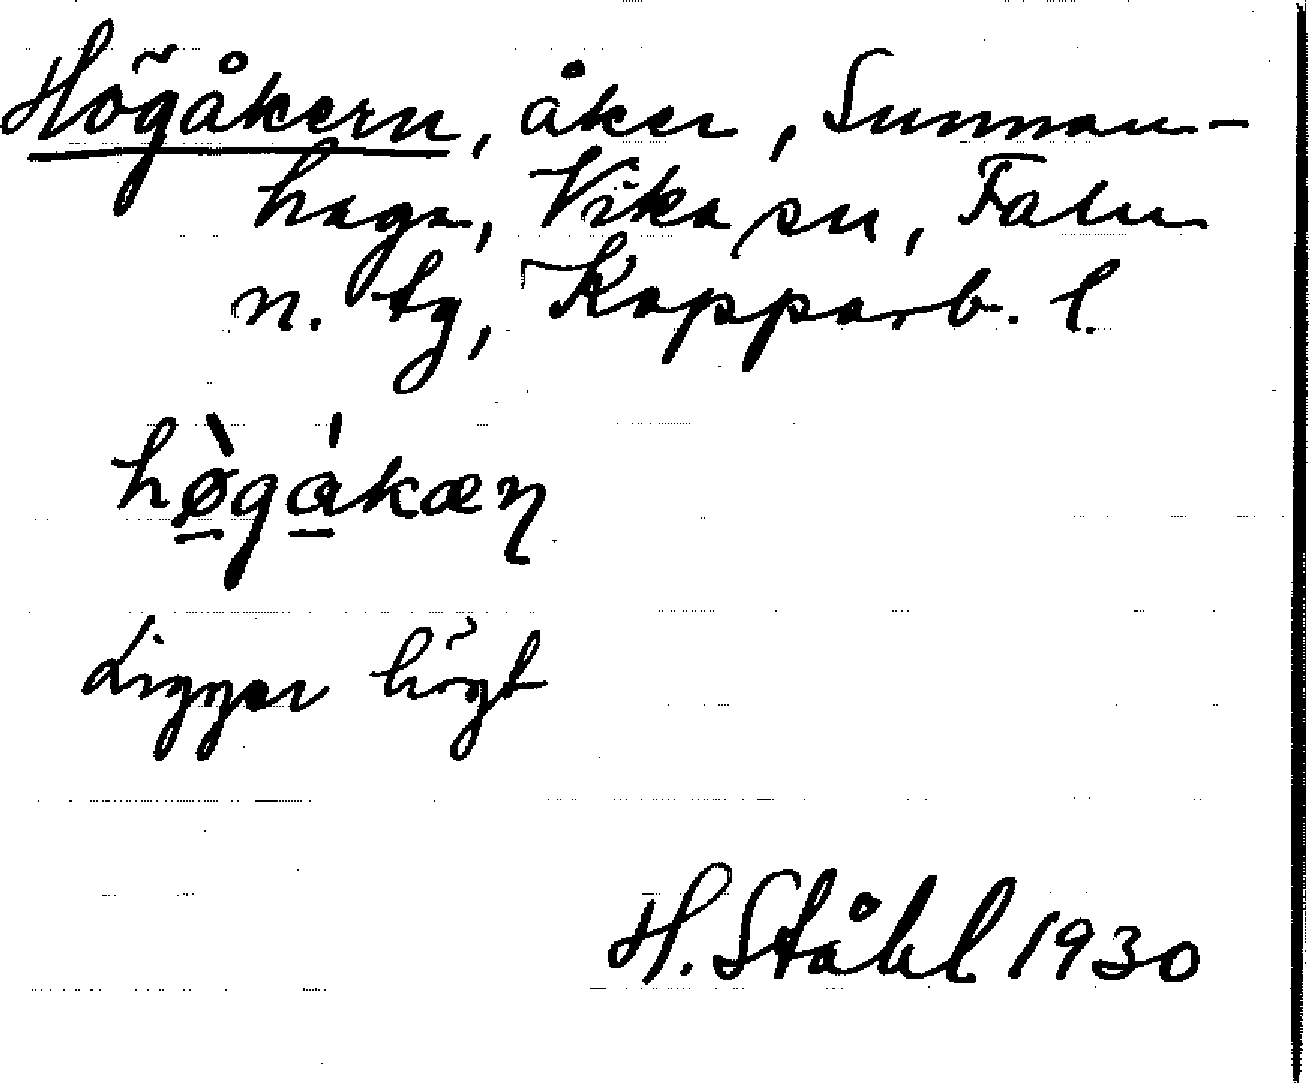 Högåkern, åker, Sunnan-
haga, Vika sn, Falu
n. tg, Kopparb. l.
hø̱̀gá̱kæɳ
Ligger högt
H. Ståhl 1930